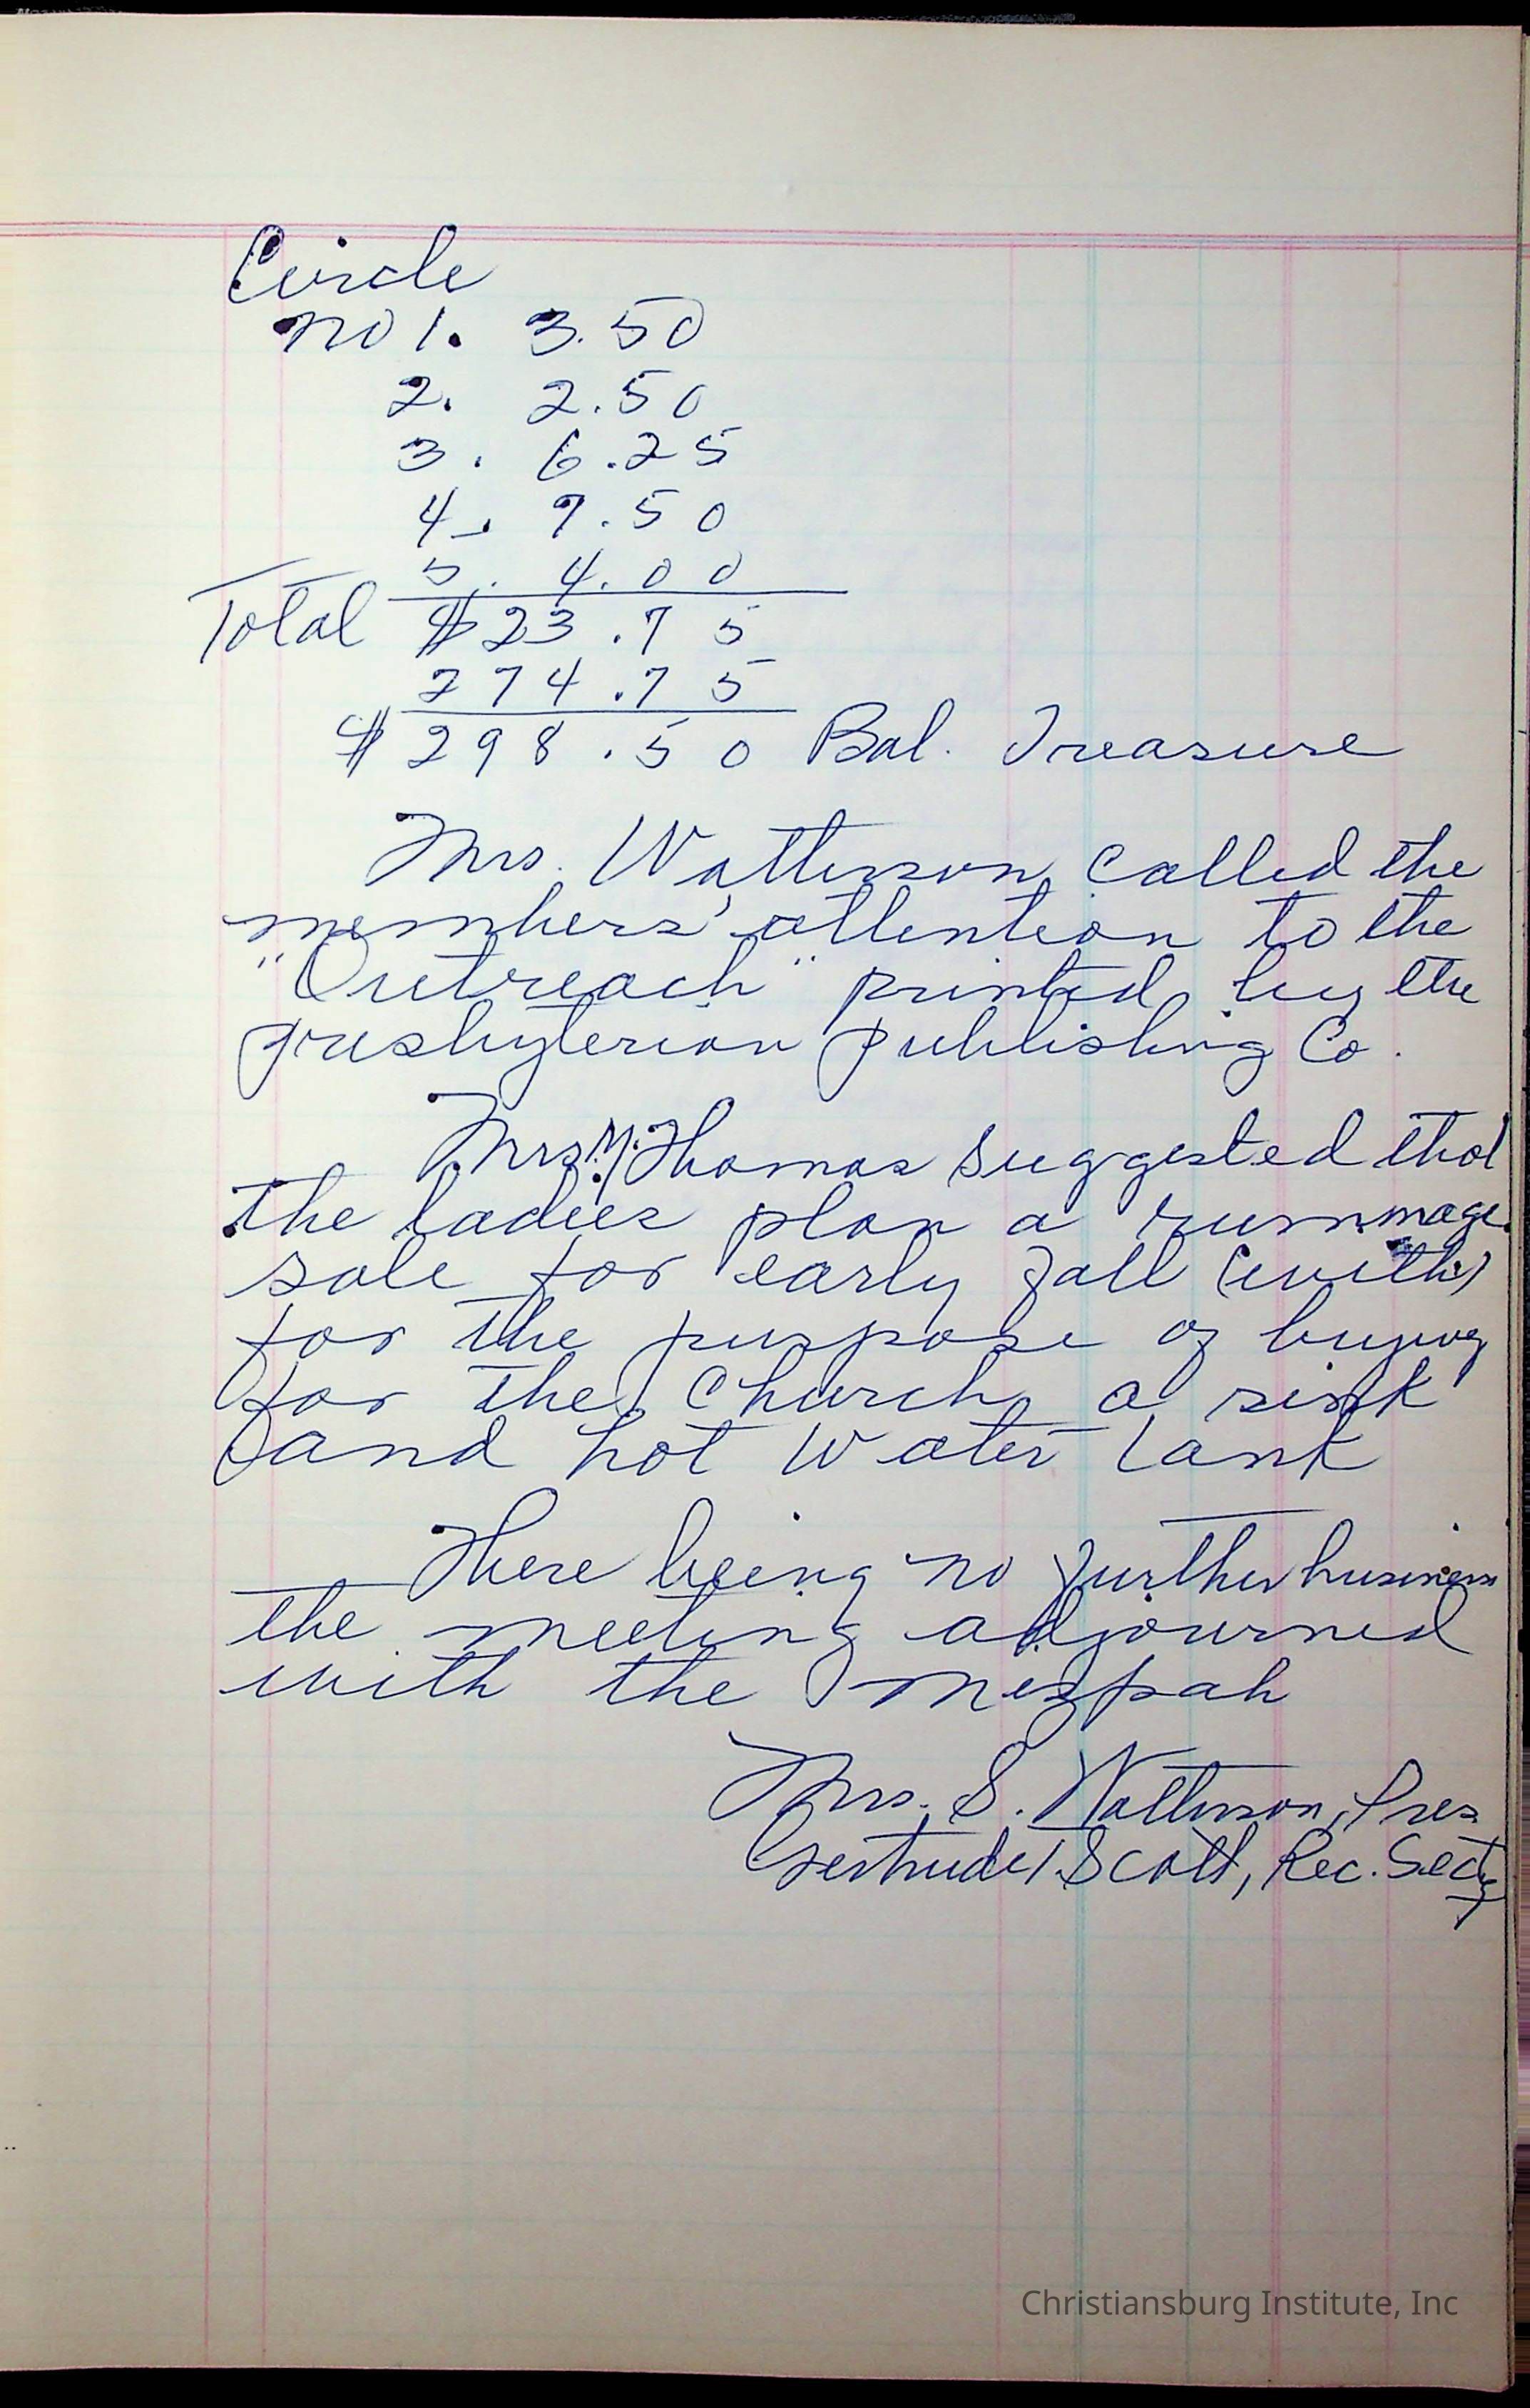 Circle
No 1. 3.50
2. 2.50
3. 6.25
4. 7.50
5. 4.00
Total $23.75
274.75
$298.50 Bal. Treasure
Mrs. Watterson called the
members' attention to the
"Outreach" printed by the
Presbyterian Publishing Co.
Mrs. M. Thomas suggested that
the ladies plan a rummage
sale for early fall (with)
for the purpose of buying
for the Church a sink
and hot water tank
There being no further business
the meeting adjourned
with the Mizpah
Mrs. S. Watterson, Pres
Gertrude Scott, Rec. Secty
Christiansburg Institute, Inc